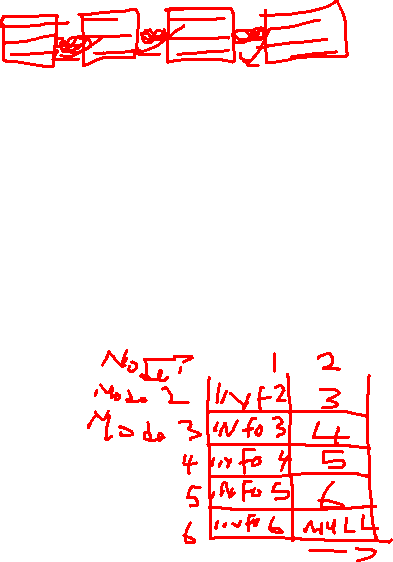 Node 1 1 2
Node 2 INF2 3
Node 3 INFO 3 4
4 INFO 4 5
5 INFO 5 6
6 INFO 6 NULL